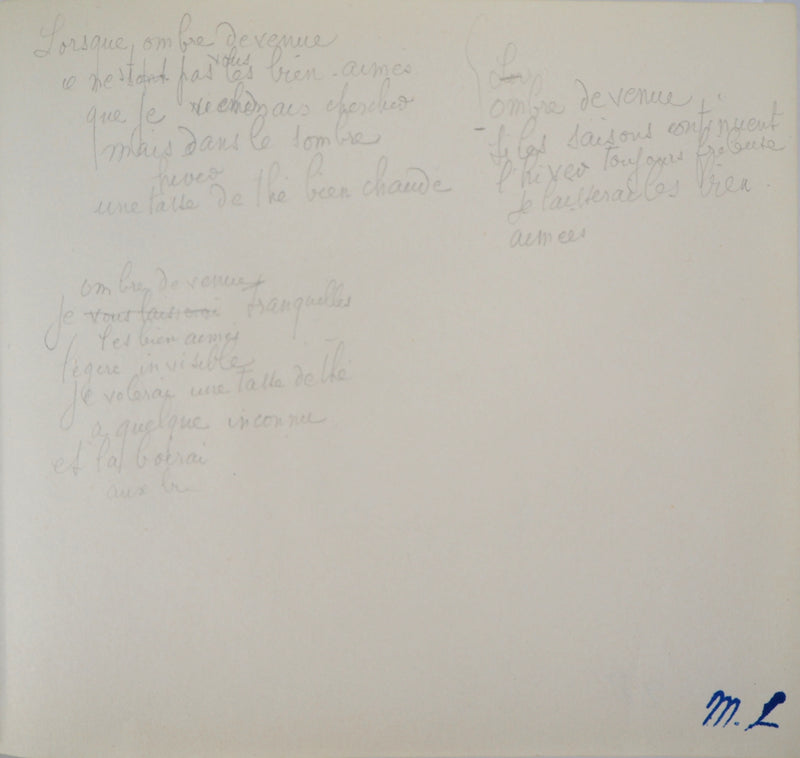 Lorsque, ombre devenue
ce n'est pas vous les bien-aimés
que je chercher
mais dans le sombre
hiver
une tasse de thé bien chaude
ombre devenue
si les saisons continuent
l'hiver toujours frileuse
je laisserai les bien
aimées
ombre devenue
Je vous laisserai tranquilles
les bien aimés
légère invisible
Je volerai une tasse de thé
a quelque inconnu
et la boirai
aux
M. L